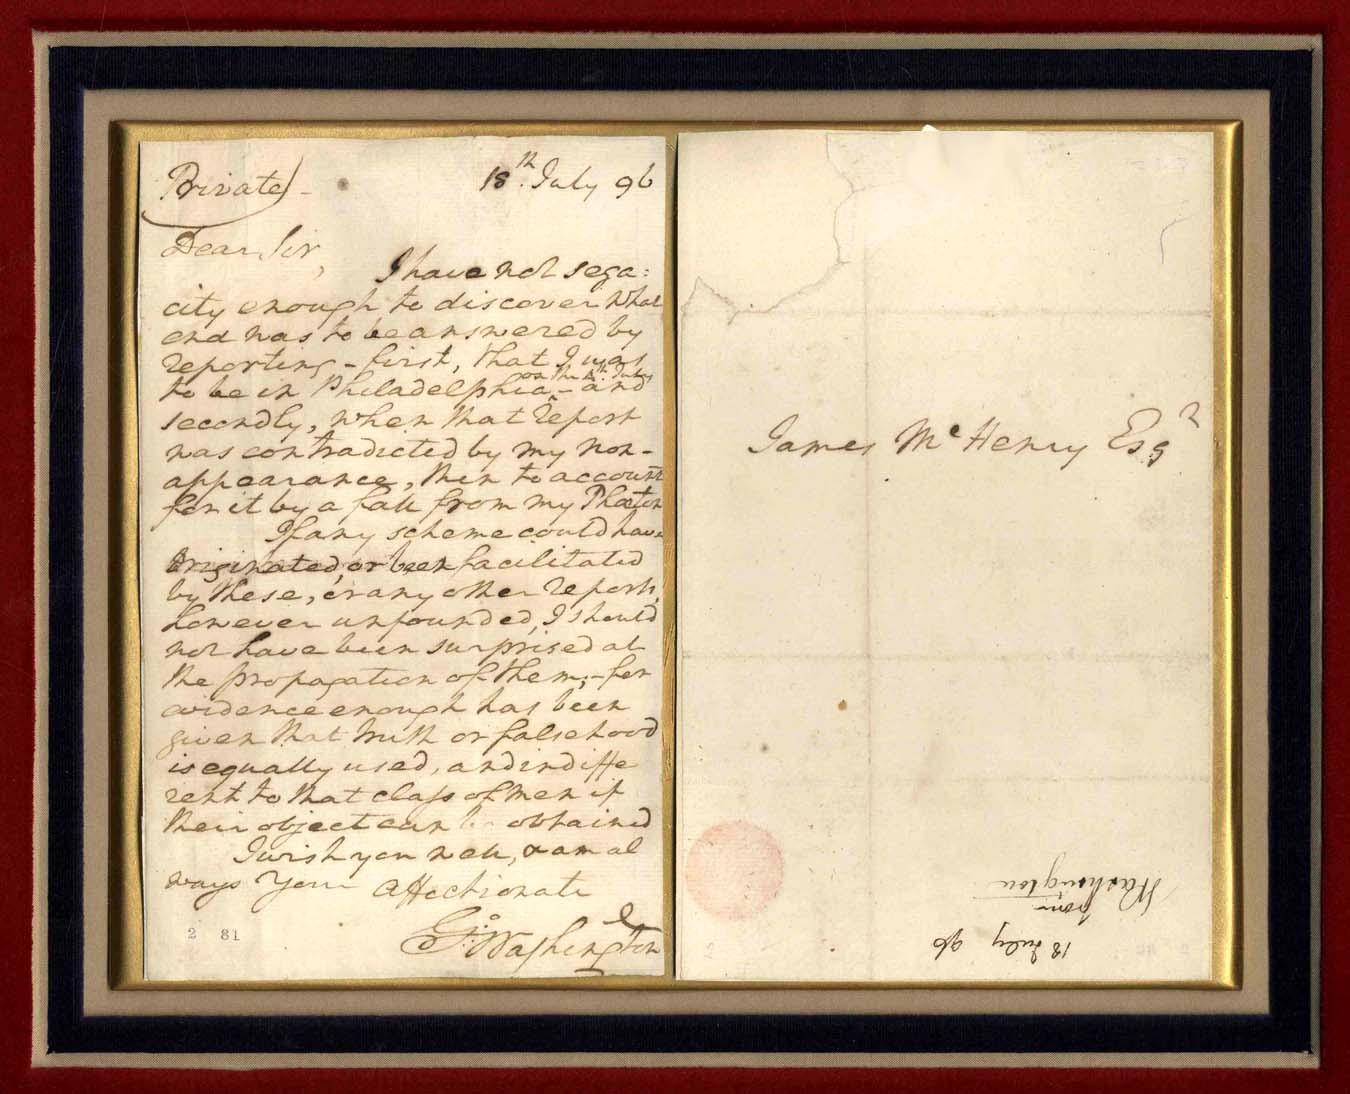 Private
18th July 96
Dear Sir,
I have not sega:
city enough to discover what
end was to be answered by
reporting - first, that I was
on the 4th July
to be in Philadelphia - and
secondly, when that report
was contradicted by my non-
appearance, then to account
for it by a fall from my Phæton
If any scheme could have
originated, or been facilitated
by these, or any other reports,
however unfounded, I should
not have been surprised at
the propagation of them; - for
evidence enough has been
given that truth or falsehood
is equally used, and indiffe
rent to that class of men if
their object can be obtained
I wish you well, & am al
ways Your Affectionate
Go: Washington
2 81
James McHenry Esqr
18 July 96
from
Washington